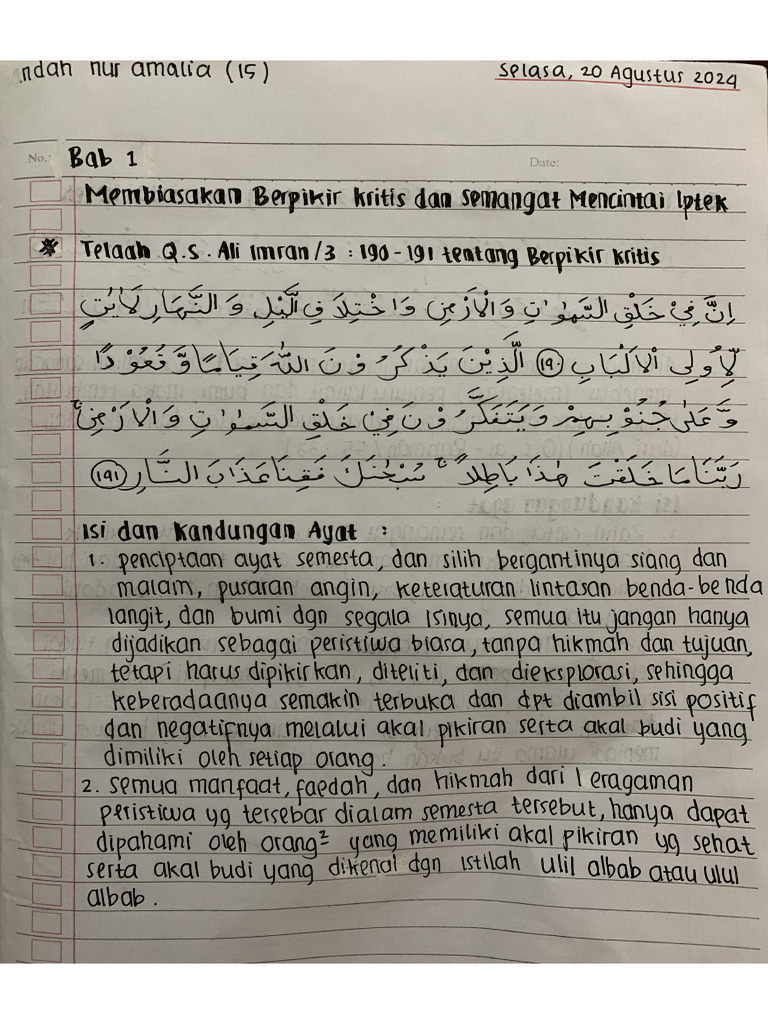 ndah nur amalia (15)
Selasa, 20 Agustus 2024
No.: Bab 1 Date:
Membiasakan Berpikir Kritis dan Semangat Mencintai Iptek
* Telaah Q.S. Ali Imran/3 : 190 - 191 tentang Berpikir Kritis
اِنَّ فِيْ خَلْقِ السَّمٰوٰتِ وَالْاَرْضِ وَاخْتِلَافِ الَّيْلِ وَالنَّهَارِ لَاٰيٰتٍ
لِّاُولِى الْاَلْبَابِ (١٩٠) الَّذِيْنَ يَذْكُرُوْنَ اللّٰهَ قِيَامًا وَّقُعُوْدًا
وَّعَلٰى جُنُوْبِهِمْ وَيَتَفَكَّرُوْنَ فِيْ خَلْقِ السَّمٰوٰتِ وَالْاَرْضِۚ
رَبَّنَا مَا خَلَقْتَ هٰذَا بَاطِلًاۚ سُبْحٰنَكَ فَقِنَا عَذَابَ النَّارِ (١٩١)
Isi dan Kandungan Ayat :
1. penciptaan ayat semesta, dan silih bergantinya siang dan
malam, pusaran angin, keteraturan lintasan benda-benda
langit, dan bumi dgn segala isinya, semua itu jangan hanya
dijadikan sebagai peristiwa biasa, tanpa hikmah dan tujuan,
tetapi harus dipikirkan, diteliti, dan dieksplorasi, sehingga
keberadaanya semakin terbuka dan dpt diambil sisi positif
dan negatifnya melalui akal pikiran serta akal budi yang
dimiliki oleh setiap orang.
2. Semua manfaat, faedah, dan hikmah dari eragaman
peristiwa yg tersebar dialam semesta tersebut, hanya dapat
dipahami oleh orang² yang memiliki akal pikiran yg sehat
serta akal budi yang dikenal dgn istilah ulil albab atau ulul
albab.